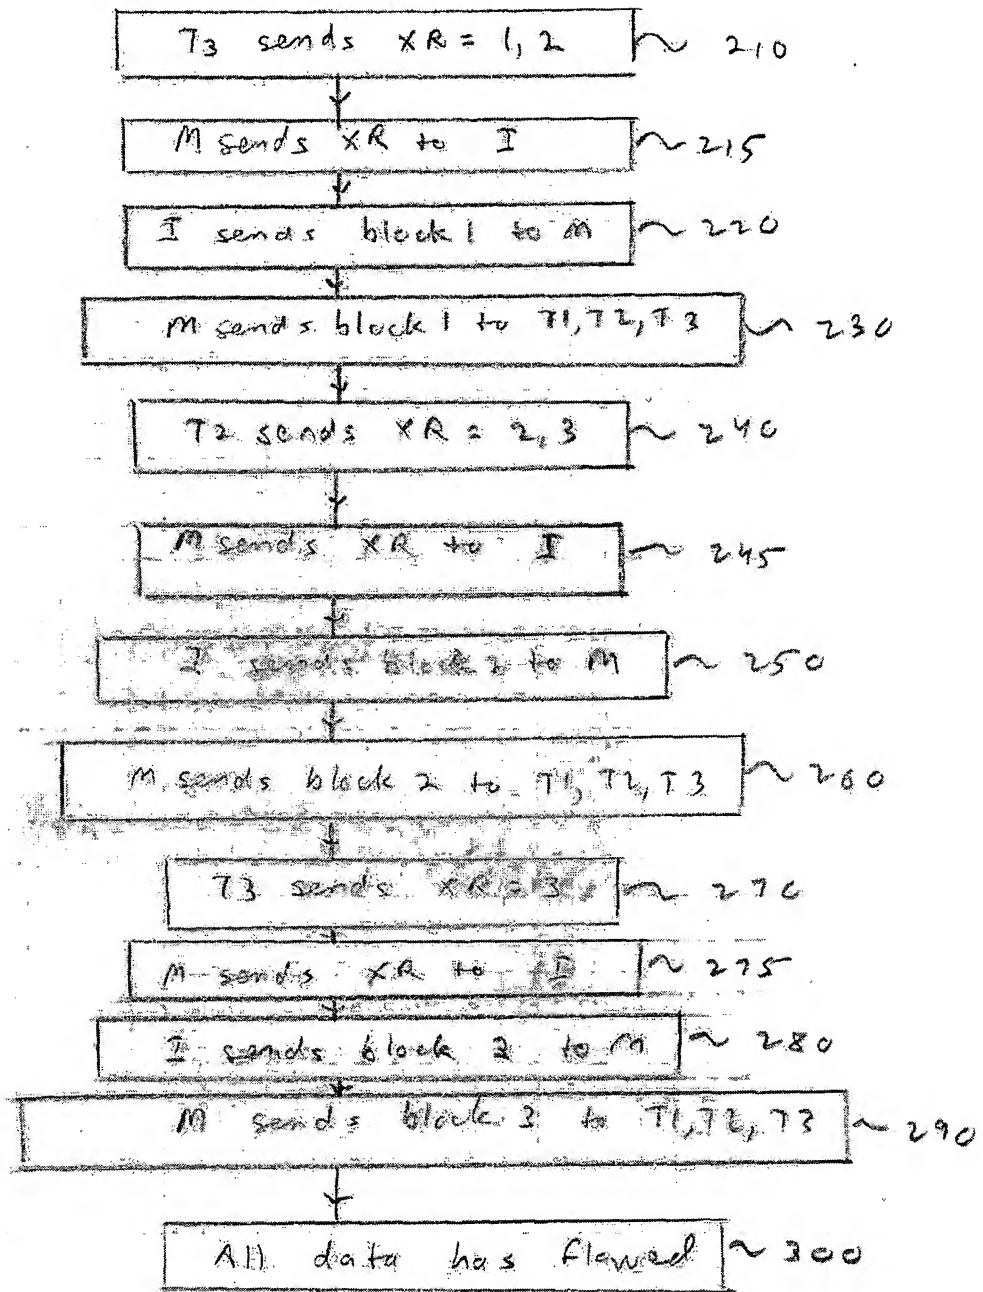 T3 sends XR = 1, 2 ~ 210
M sends XR to I ~ 215
I sends block 1 to M ~ 220
M sends block 1 to T1, T2, T3 ~ 230
T2 sends XR = 2, 3 ~ 240
M sends XR to I ~ 245
I sends block 2 to M ~ 250
M sends block 2 to T1, T2, T3 ~ 260
T3 sends XR = 3 ~ 270
M sends XR to I ~ 275
I sends block 2 to M ~ 280
M sends block 3 to T1, T2, T3 ~ 290
All data has flowed ~ 300